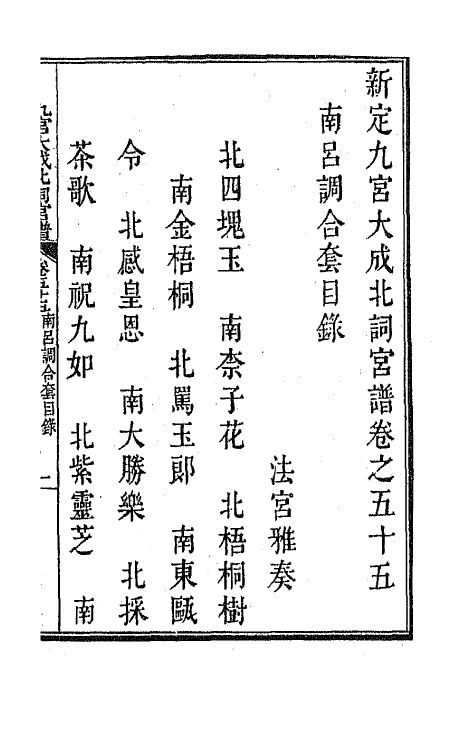 新定九宮大成北詞宮譜卷之五十五
南呂調合套目錄
法宮雅奏
北四塊玉　南柰子花　北梧桐樹
南金梧桐　北罵玉郎　南東甌
令　北感皇恩　南大勝樂　北採
茶歌　南祝九如　北紫靈芝　南
九宮大成北詞宮譜　卷五十五　南呂調合套目錄　一